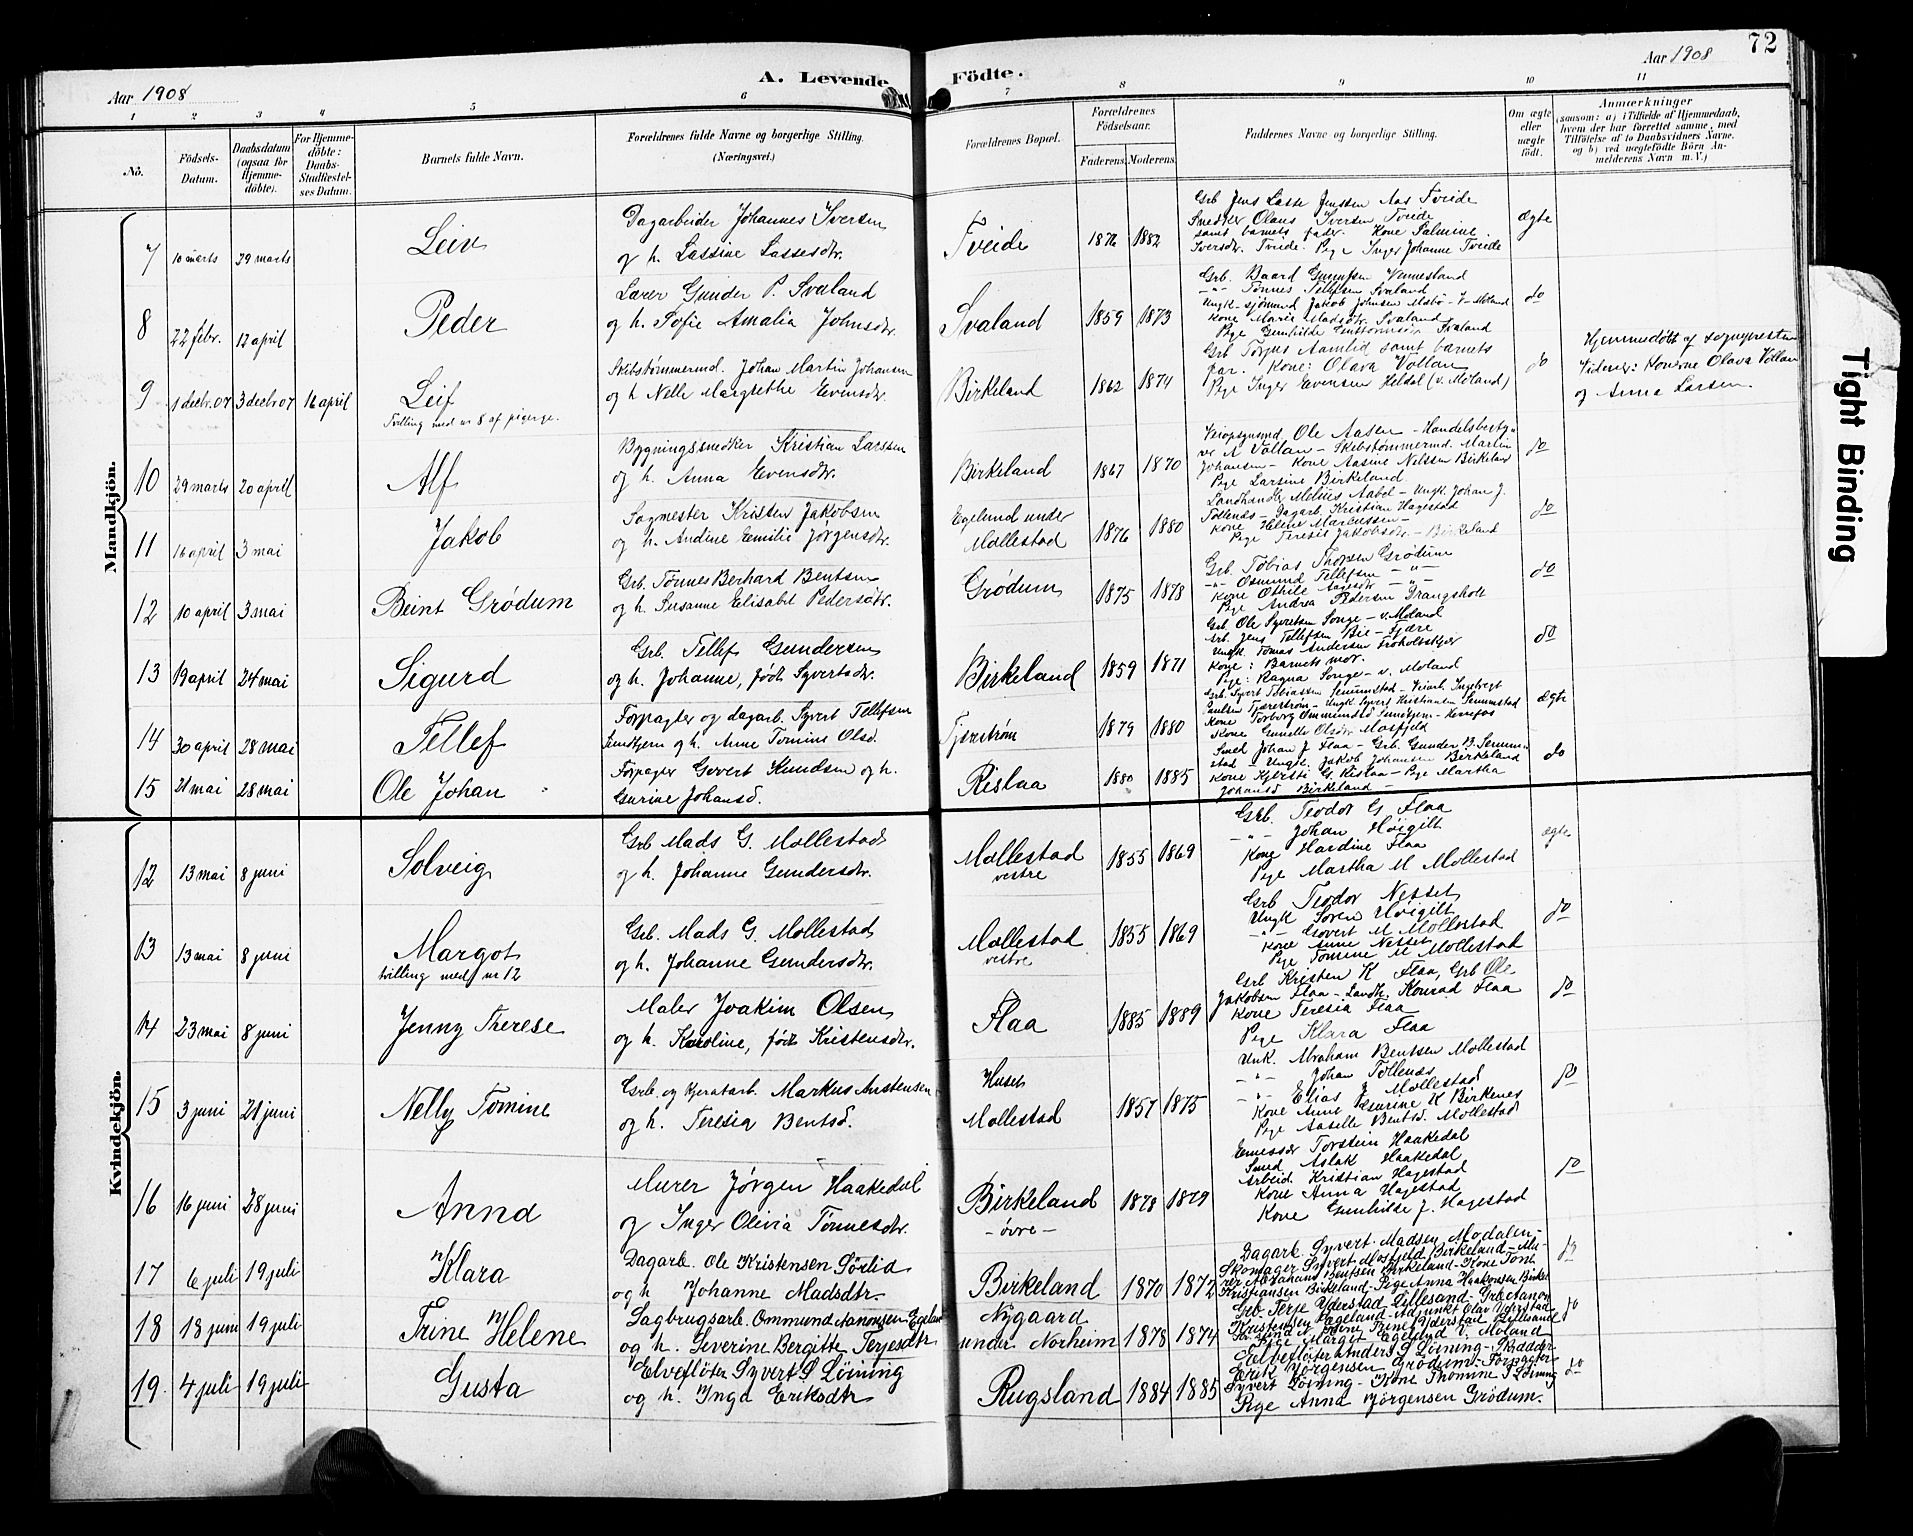 72
A. Levende Födte.
Aar 1908
Aar 1908
1 2 3 4 5 6 7 8 9 10 11
Nö.
Födsels-Datum.
Daabsdatum (ogsaa for Hjemme-döbte).
For Hjemme-döbte: Daabs-Stadfæstel-ses Datum.
Barnets fulde Navn.
Forældrenes fulde Navne og borgerlige Stilling. (Næringsvei.)
Forældrenes Bopæl.
Forældrenes Födselsaar.
Faderens. Moderens.
Faddernes Navne og borgerlige Stilling.
Om ægte eller uægte födt.
Anmærkninger
(saasom: a) i Tilfælde af Hjemmedaab,
hvem der har forrettet samme, med
Tilföielse af to Daabsvidners Navne.
og b) ved uægtefödte Börn An-
melderens Navn m. V.)
Mandkjön.
7 10 marts 29 marts
Leiv
Dagarbeider Johannes Iversen
og h. Lassine Lassesdtr.
Tveide 1876 1882
Grb Jens Lasse Jensen Aas Tveide
Snedker Olaus Iversen Tveide
samt barnets fader. Kone Salmine
Iversdtr. Tveide. Pige Inger Johanne Tveide
ægte
8 22 febr. 12 april
Peder
Lærer Gunder P. Svaland
og h. Sofie Amalia Johnsdtr.
Svaland 1859 1873
Grb. Baard Vennesland
-"- Tønnes Tellefsen Svaland
Ungk-sjømand Jakob Johnsen V-Moland
Kone Maria Madsdtr. Svaland
Pige Gunhilde Svaland
do
9 1 decbr.07 3 decbr 07 16 april
Leif
Tvilling med nr 8 af pigerne.
Skibstømmermd. Johan Martin Johansen
og h Nelle Margrethe Evensdtr.
Birkeland 1862 1874
Grb Torjus Aamlid samt barnets
far. Kone: Olava Vollan
Pige Inger Evensen Heldal (v. Moland)
do
Hjemmedøbt af sognepresten
Vidner: Konerne Olava Vollan
og Anna Larsen.
10 29 marts 20 april
Alf
Bygningssnedker Kristian Larssen
og h. Anna Evensdtr.
Birkeland 1867 1870
Veiopsynsmd Ole Aasen - Handelsbesty-
rer A Vollan - Skibstømmermd. Martin
Johansen - Kone Aasine Nelssen Birkeland
Pige Larsine Birkeland
do
11 16 april 3 mai
Jakob
Sagmester Kristen Jakobsen
og h. Andine Emilie Jørgensdtr.
Egelund under
Mollestad 1876 1880
Landhandler Melius Aabel - Ungk. Johan J.
Tollenæs - Dagarb. Kristian Hagestad
Kone Helene Marcussen -
Pige Teresie Jakobsdtr - Birkeland
do
12 10 april 3 mai
Beint Grødum
Grb. Tønnes Berhard Bentsen
og h. Susanne Elisabet Pedersdtr.
Grødum 1875 1878
Grb. Tobias Thorsen Grødum
-"- Osmund Tellefsen -"-
Kone Othilie -"-
Pige Andrea Pedersen Drangsholt
do
13 19 april 24 mai
Sigurd
Grb. Tellef Gundersen
og h. Johanne, født Syvertsdtr.
Birkeland 1859 1871
Grb. Ole Syvertsen Songe - v. Moland
Arb. Jens Tellefsen Bie - Fjære
Ungk. Tomas Andersen
Kone: Barnets mor.
Pige: Ragna Songe - v. Moland
do
14 30 april 28 mai
Tellef
Forpagter og dagarb. Syvert Tellefsen
og h. Anne Tomine Olsd.
Tjerstrøm 1879 1880
Grb. Syvert Tobiassen Senumstad -
Tjærestrøm - Ungk Syvert Kristiansen Senumstad
Kone Torborg
Kone Gunelle Olsdtr Mosfjeld
ægte
15 21 mai 28 mai
Ole Johan
Forpagter Govert Knudsen og h.
Gurine Johansd.
Rislaa 1880 1885
Smed Johan J Flaa - Grb. Gunder B. Senum-
stad - Ungk. Jakob Johansen Birkeland
Kone Kjersti G. Rislaa - Pige Martha
Johansd Birkeland -
do
Kvindekjön.
12 13 mai 8 juni
Solveig
Grb Mads G. Mollestad
og h. Johanne Gundersdtr.
Mollestad
vestre 1855 1869
Grb. Teodor G Flaa
-"- Johan Høigilt
Kone Hardine Flaa
Pige Martha M Mollestad
ægte
13 13 mai 8 juni
Margot
tvilling med nr 12
Grb. Mads G. Mollestad
og h. Johanne Gundersdtr.
Mollestad
vestre 1855 1869
Grb Teodor Nesset
Ungk Søren Høigilt
-"- Govert M Mollestad
Kone Anne Nesset
Pige Tomine M Mollestad
do
14 23 mai 8 juni
Jenny Therese
Maler Joakim Olsen
og h. Karoline, født Kristensdtr.
Flaa 1885 1889
Grb Kristen K Flaa, Grb Ole
Jakobsen Flaa - Landh. Konrad Flaa
Kone Teresia Flaa
Pige Klara Flaa
do
15 3 juni 21 juni
Nelly Tomine
Grb. og kjørarb. Markus Anstensen
og h. Teresia Bentsd.
Huset
Mollestad 1857 1875
Unk. Abraham Bentsen Mollestad
-"- Johan Tollenæs
-"- Elias J Mollestad
Kone Anne Gurine K Birkenes
Pige Aaselle Bentsd. Mollestad
do
16 16 juni 28 juni
Anna
Murer Jørgen Haakedal
og Inger Olivia Tønnesdtr.
Birkeland
- øvre - 1878 1879
Torstein Haakedal
Smed Aslak Haakedal
Arbeid. Kristian Hagestad
Kone Anna Hagestad
Kone Gunhilde J. Hagestad
do
17 6 juli 19 juli
Klara
Dagarb. Ole Kristensen Sørlid
og h Johanne Madsdtr.
Birkeland 1870 1872
Dagarb. Syvert Madsen Modalen,
Skomager Syvert Mosfjeld Birkeland - Mu-
rer Abraham Bentsen Birkeland - Kone Tone
Kristiansen Birkeland - Pige Anna Haakonsen Birkel
do
18 18 juni 19 juli
Trine Helene
Sagbrugsarb. Ommund Aanonsen Egeland
og h. Severine Bergitte Terjesdtr
Nygaard
under Norheim 1878 1874
Grb Terje Yderstad Lillesand - Grb Aanon
Kristensen Egeland - Adjunkt Olav Yderstad
Trine Yderstad Lillesand
Pige Margit Egeland V. Moland
do
19 4 juli 19 juli
Gusta
Elvefløter Syvert S Løining
og h. Inga Eriksdtr
Rugsland 1884 1885
Elvefløter Anders S Løining - Skrædder
Erik Jørgensen Grødum - Forpagter
Syvert Løining - Kone Thomine S Løining
Pige Anna Jørgensen Grødum.
do
Tight Binding